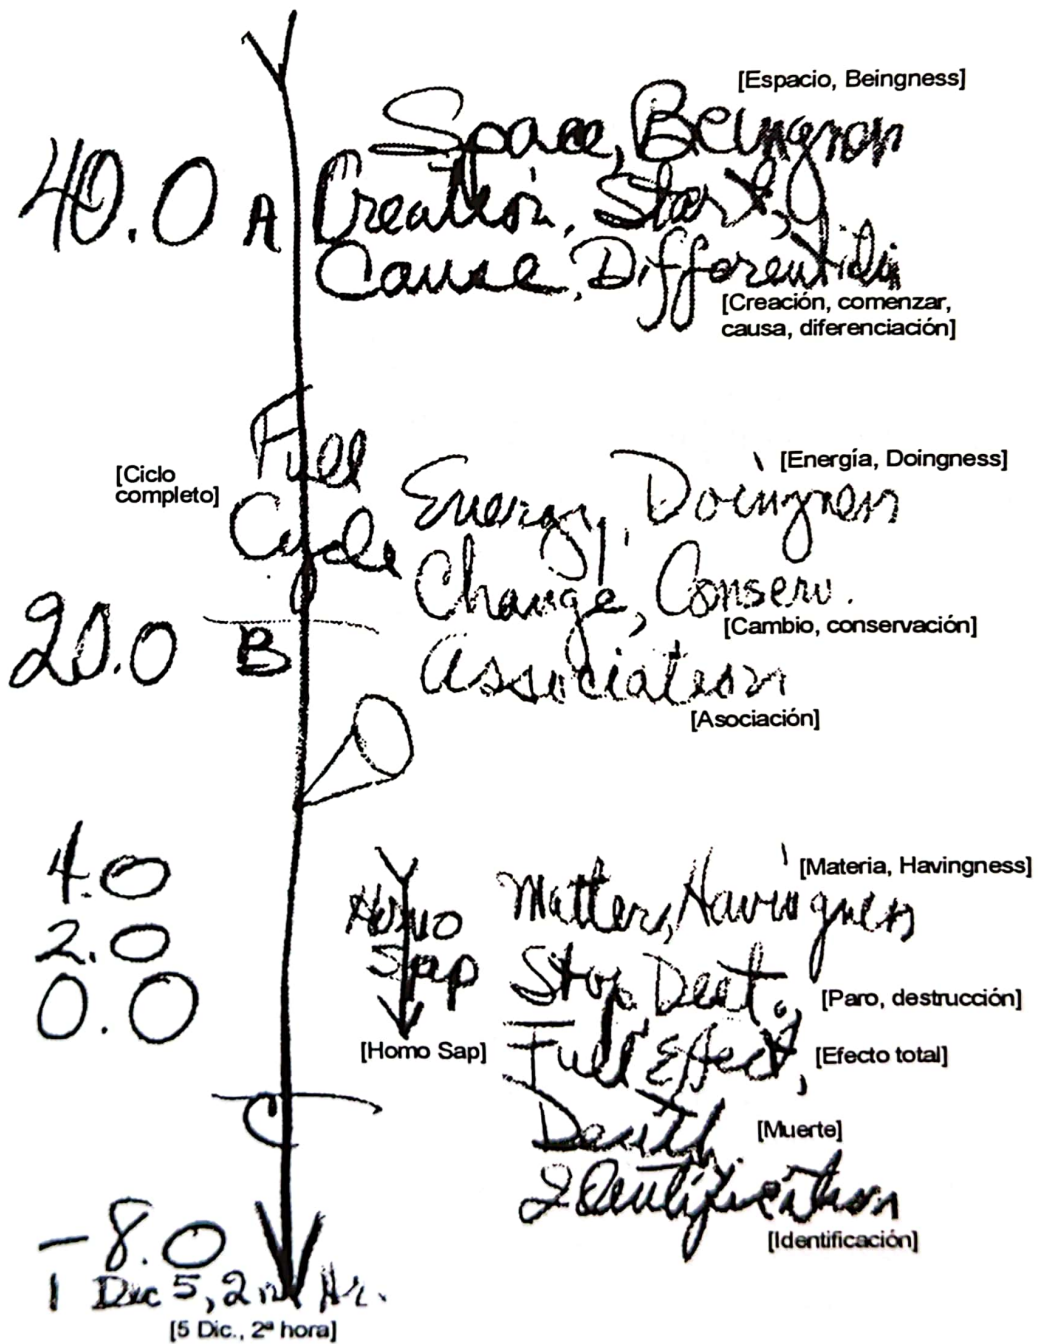 [Espacio, Beingness]
Space, Beingness
40.0 A Creation, Start,
Cause, Differentiation
[Creación, comenzar,
causa, diferenciación]
Full
Cycle
[Ciclo
completo]
[Energía, Doingness]
Energy, Doingness
Change, Conserv.
[Cambio, conservación]
20.0 B Association
[Asociación]
4.0
2.0
0.0
Homo
Sap
[Homo Sap]
[Materia, Havingness]
Matter, Havingness
Stop, Dest.,
[Paro, destrucción]
Full Effect,
[Efecto total]
C
Death,
[Muerte]
Identification
[Identificación]
-8.0
1 Dec 5, 2nd Hr.
[5 Dic., 2ª hora]